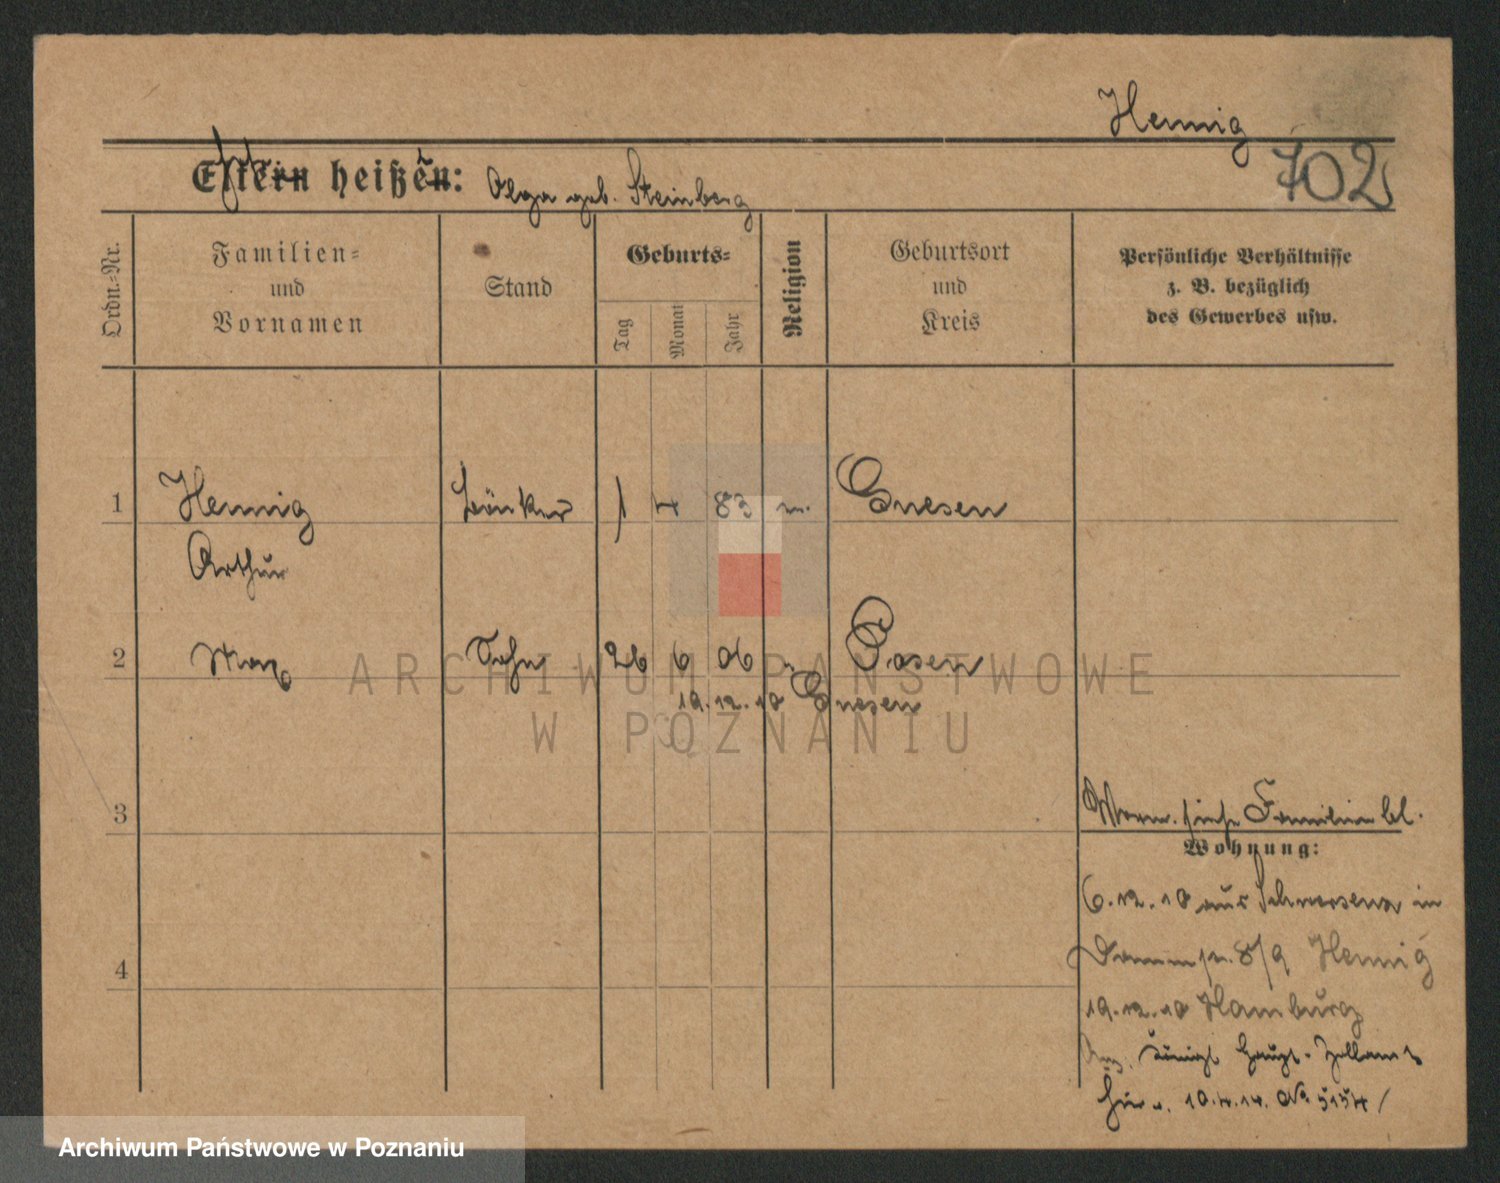 Hennig
702
Eltern heißen: Olga geb. Steinberg
Ordn.-Nr.
Familien-
und
Vornamen
Stand
Geburts-
Tag
Monat
Jahr
Religion
Geburtsort
und
Kreis
Persönliche Verhältnisse
z. B. bezüglich
des Gewerbes usw.
1 Hennig 1 4 83 Gnesen
Arthur
2 Max Sohn 26 6 06 Posen
19.12.10 Gnesen
ARCHIWUM PAŃSTWOWE
W POZNANIU
3
siehe Familienbl.
Wohnung:
6.12.10 aus Schwersenz in
8/9 Hennig
19.12.10 Hamburg
4
Königl Haupt-Zollamt
10.4.14. No 5154
Archiwum Państwowe w Poznaniu